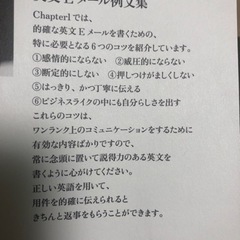 英文Eメール例文集
Chapter1では、
的確な英文Eメールを書くための、
特に必要となる6つのコツを紹介しています。
①感情的にならない ②威圧的にならない
③断定的にしない ④押しつけがましくしない
⑤はっきり、かつ丁寧に伝える
⑥ビジネスライクの中にも自分らしさを出す
これらのコツは、
ワンランク上のコミュニケーションをするために
有効な内容ばかりですので、
常に念頭に置いて説得力のある英文を
書くように心がけてください。
正しい英語を用いて、
用件を的確に伝えられると
きちんと返事をもらうことができます。